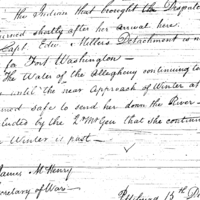 the Indian that brought the Dispatc
urned shortly after her arrival here.
Capt. Edw. Millers Detachment is n
for Fort Washington —
The Water of the Allegheny continuing to
until the near approach of Winter
med safe to send her down the River —
cluded by the 2nd Mr Gen that she continu
Winter is past —
James McHenry
Secretary of War
15th D